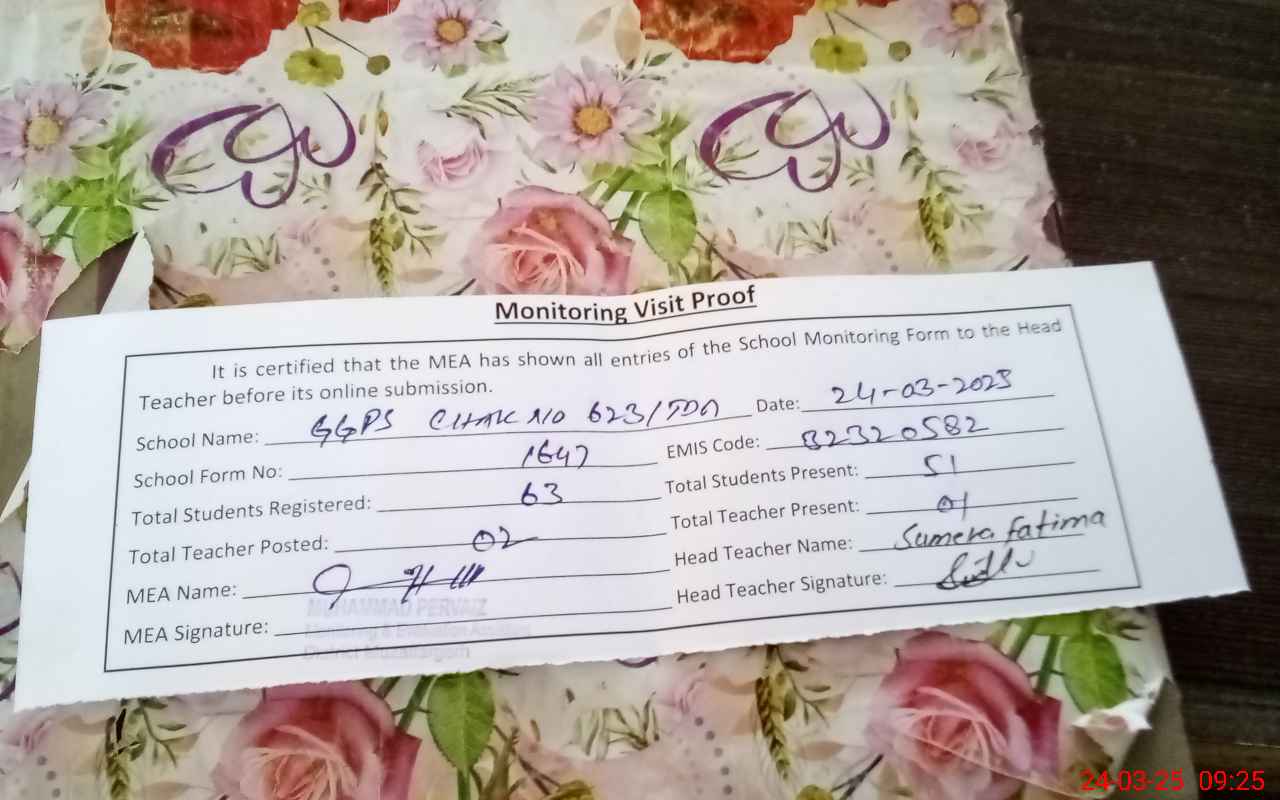 Monitoring Visit Proof
It is certified that the MEA has shown all entries of the School Monitoring Form to the Head
Teacher before its online submission.
School Name: GGPS CHAK NO 623/TDA Date: 24-03-2025
School Form No: 1647 EMIS Code: 32320582
Total Students Registered: 63 Total Students Present: 51
Total Teacher Posted: 02 Total Teacher Present: 01
MEA Name: Head Teacher Name: Sumera fatima
MEA Signature: Head Teacher Signature:
MUHAMMAD PERVAIZ
Monitoring & Evaluation Assistant
District Muzaffargarh
24-03-25 09:25